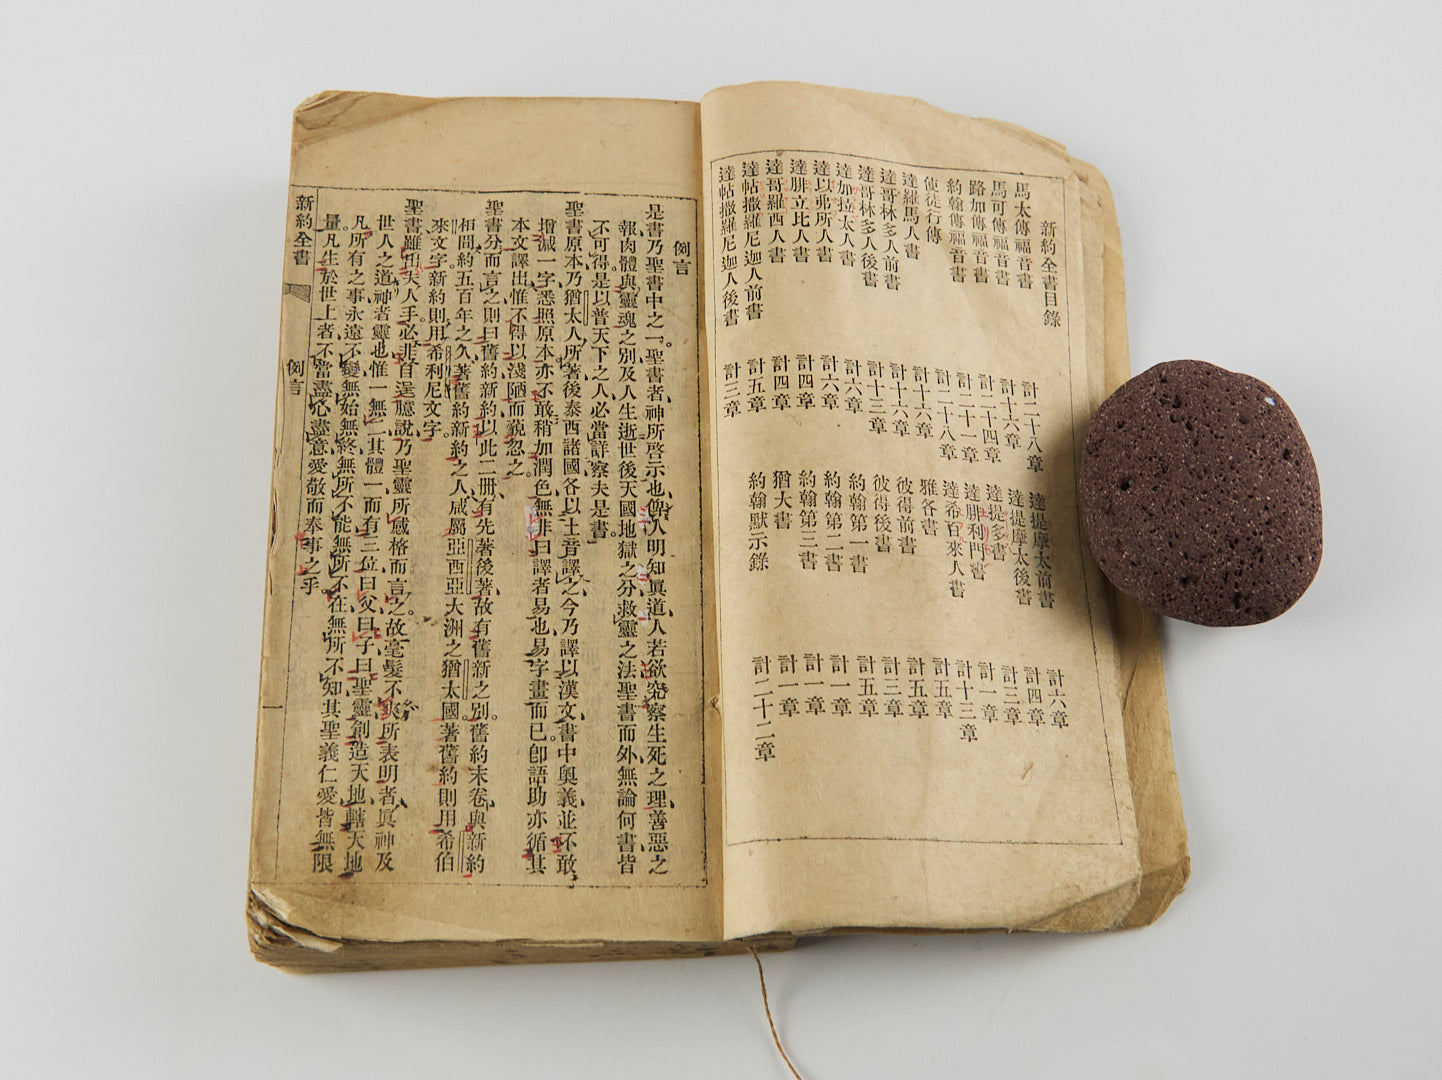 新約全書目錄
馬太傳福音書 計二十八章 達提摩太前書 計六章
馬可傳福音書 計十六章 達提摩太後書 計四章
路加傳福音書 計二十四章 達提多書 計三章
約翰傳福音書 計二十一章 達腓利門書 計一章
使徒行傳 計二十八章 達希百來人書 計十三章
達羅馬人書 計十六章 雅各書 計五章
達哥林多人前書 計十六章 彼得前書 計五章
達哥林多人後書 計十三章 彼得後書 計三章
達加拉太人書 計六章 約翰第一書 計五章
達以弗所人書 計六章 約翰第二書 計一章
達腓立比人書 計四章 約翰第三書 計一章
達哥羅西人書 計四章 猶大書 計一章
達帖撒羅尼迦人前書 計五章 約翰默示錄 計二十二章
達帖撒羅尼迦人後書 計三章
例言
是書乃聖書中之一。聖書者、神所啓示也、俾人明知眞道、人若欲究察生死之理、善惡之
報、肉體與靈魂之別、及人生逝世後天國地獄之分、救靈之法、聖書而外、無論何書、皆
不可得、是以普天下之人、必當詳察夫是書。
聖書原本、乃猶太人所著、後泰西諸國、各以土音譯之、今乃譯以漢文、書中奧義、並不敢
增減一字、悉照原本、亦不敢稍加潤色、無非曰譯者易也、易字畫而已。卽語助亦循其
本文譯出、惟不得以淺陋而藐忽之。
聖書分而言之、則曰舊約新約、以此二冊、有先著後著、故有舊新之別。舊約末卷、與新約
相間、約五百年之久、著舊約新約之人、咸屬亞西亞大洲之猶太國、著舊約則用希伯
來文字、新約則用希利尼文字。
聖書雖出夫人手、必非自逞臆說、乃聖靈所感格而言之。故毫髮不爽、所表明者、眞神及
世人之道、神者靈也、惟一無二、其體一而有三位、曰父、曰子、曰聖靈、創造天地、轄天地
凡所有之事、永遠不變、無始無終、無所不能、無所不在、無所不知、其聖義仁愛、皆無限
量。凡生於世上者、不當盡心盡意、愛敬而奉事之乎。
新約全書 例言 一